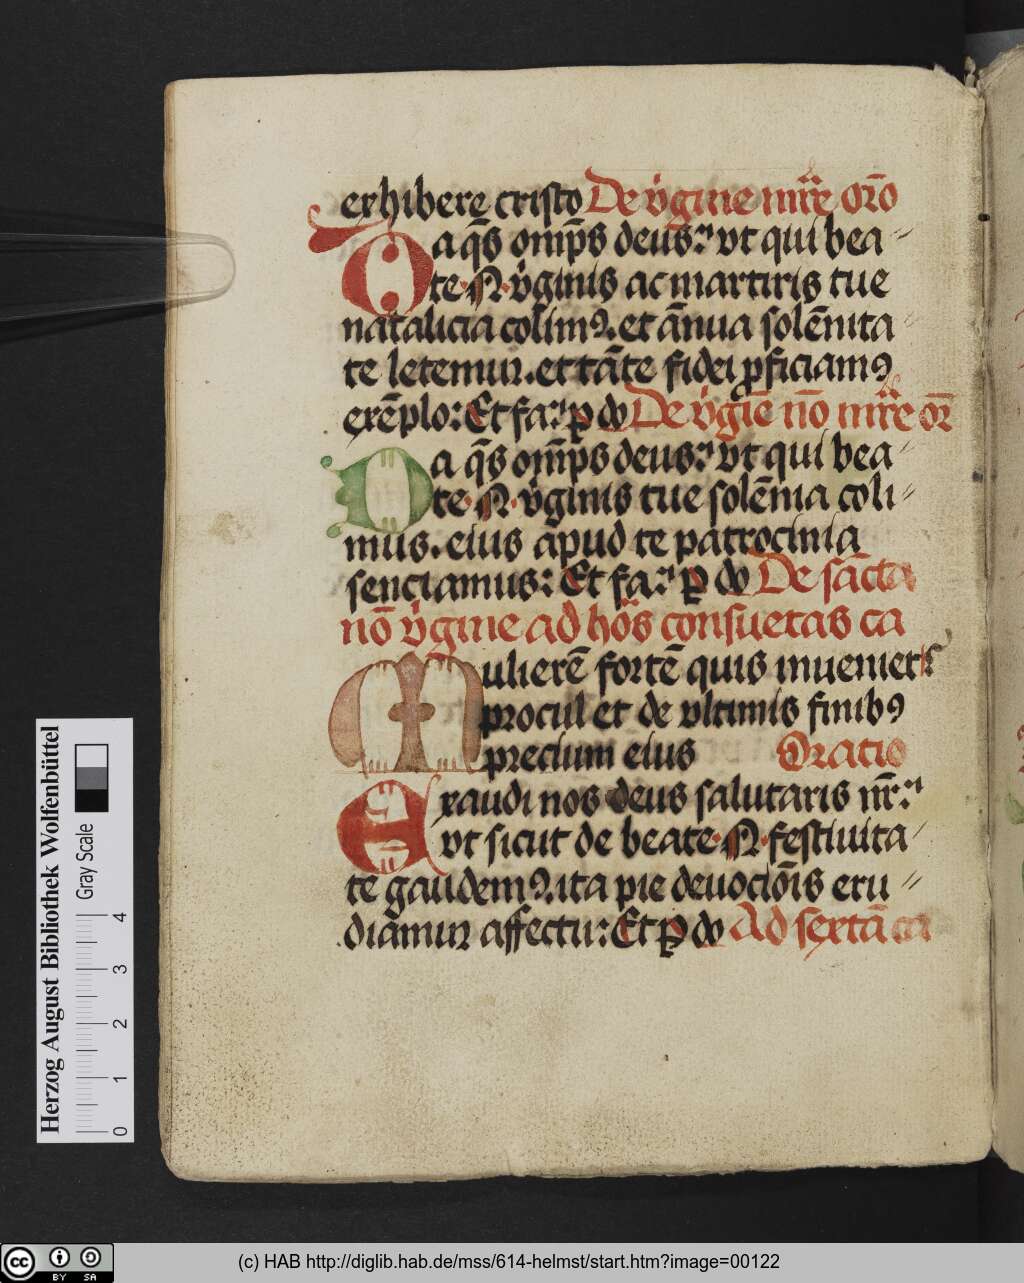 exhibere cristo De v̾gine mr̄re oro̅
Da q̄s om̅ps deus: vt qui bea⸗
te · N · v̾ginis ac martiris tue
natalicia colimꝰ. et an̅ua sole̅nita
te letemur. et ta̅te fidei ꝓficiamꝰ
exe̅plo: Et fa: ꝑ do De v̾gi̅e no̅ mr̄re or̄
Da q̄s om̅ps deus: vt qui bea⸗
te · N · v̾ginis tue sole̅nia coli⸗
mus. eius apud te patrocinia
senciamus: Et fa: ꝑ do De sa̅cta
no̅ v̾gine ad ho̅s consuetas ca
Muliere̅ forte̅ quis inueniet
procul et de vltimis finibꝰ
precium eius Oratio
Exaudi nos deus salutaris nr̄:
vt sicut de beate · N · festiuita⸗
te gaudemꝰ. ita pie deuocio̅is eru⸗
diamur affectu: Et ꝑ do Ad sexta̅ ca
Herzog August Bibliothek Wolfenbüttel
Gray Scale
0 1 2 3 4
cc BY SA
(c) HAB http://diglib.hab.de/mss/614-helmst/start.htm?image=00122